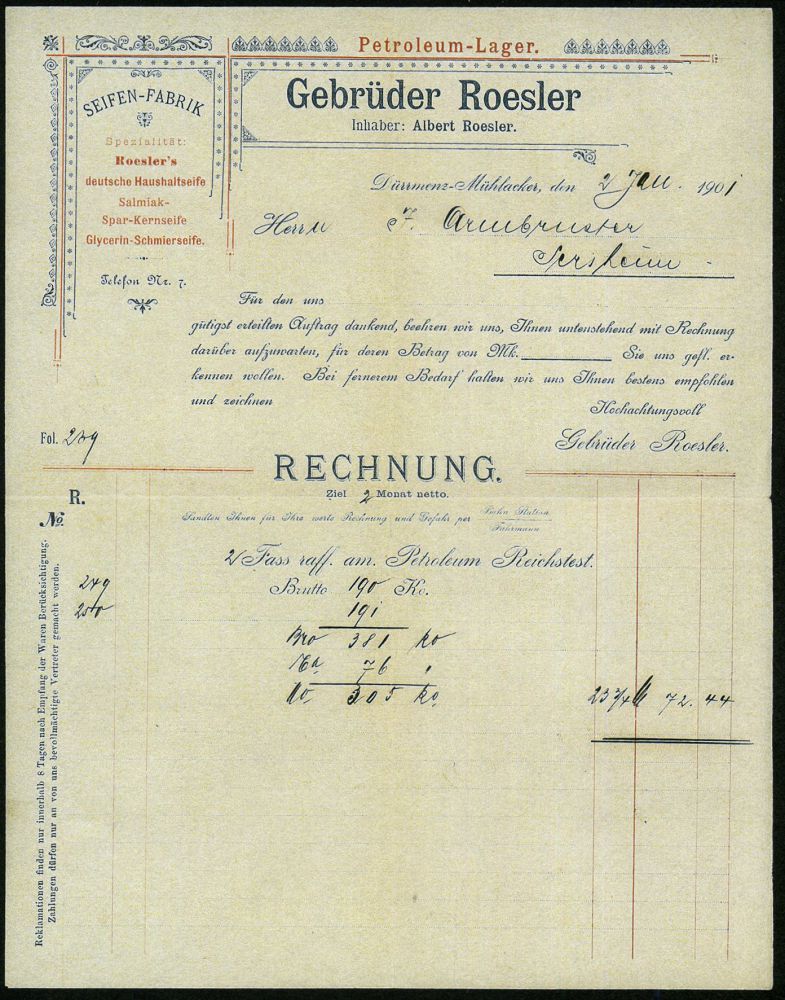 Petroleum-Lager.
SEIFEN-FABRIK
Spezialität:
Roesler's
deutsche Haushaltseife
Salmiak-
Spar-Kernseife
Glycerin-Schmierseife.
Telefon Nr. 7.
Gebrüder Roesler
Inhaber: Albert Roesler.
Dürrmenz-Mühlacker, den 2 Jan. 1901
Herrn F. Armbruster
Sersheim
Für den uns
gütigst erteilten Auftrag dankend, beehren wir uns, Ihnen untenstehend mit Rechnung
darüber aufzuwarten, für deren Betrag von Mk. Sie uns gefl. er-
kennen wollen. Bei fernerem Bedarf halten wir uns Ihnen bestens empfohlen
und zeichnen
Hochachtungsvoll
Gebrüder Roesler.
Fol. 239
RECHNUNG.
Ziel 2 Monat netto.
R.
No
Sandten Ihnen für Ihre werte Rechnung und Gefahr per Bahn Station
Fuhrmann
2 Fass raff. am. Petroleum Reichstest.
249 Brutto 190 Ko.
250 191
Bro 381 Ko
Ta 76 "
No 305 Ko. 23 3/4 M 72.44
Reklamationen finden nur innerhalb 8 Tagen nach Empfang der Waren Berücksichtigung.
Zahlungen dürfen nur an von uns bevollmächtigte Vertreter gemacht werden.